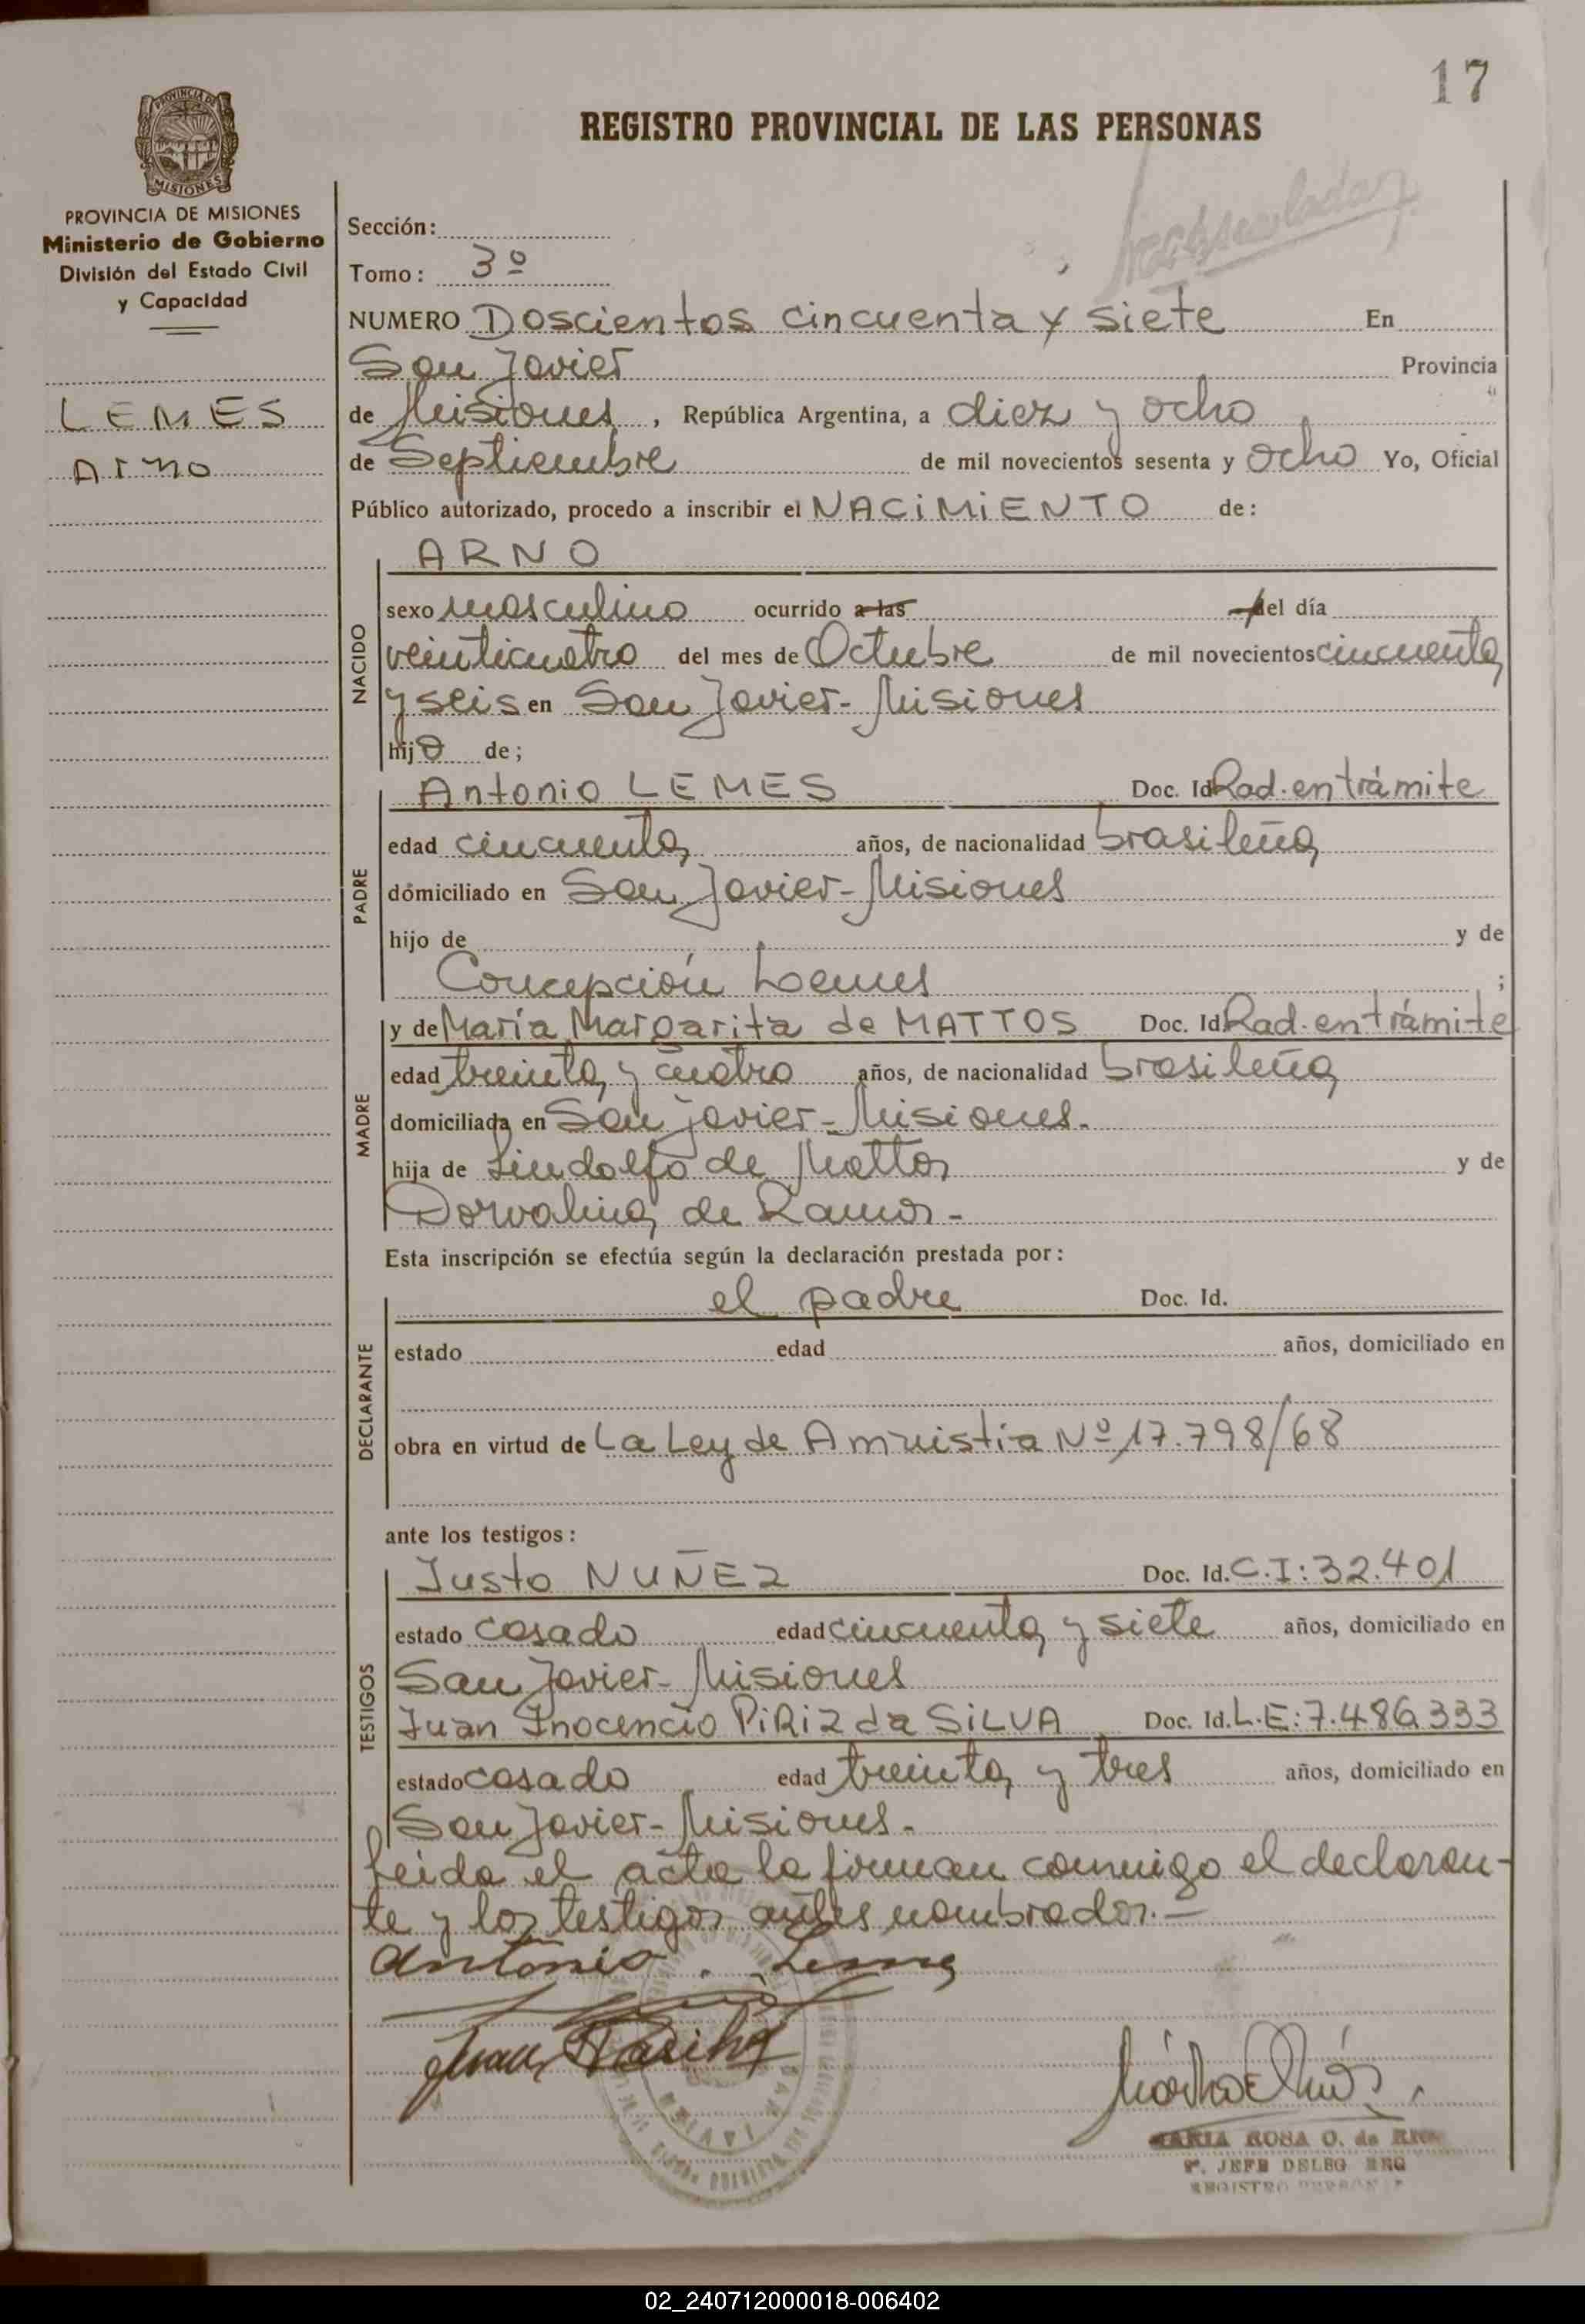 17
REGISTRO PROVINCIAL DE LAS PERSONAS
PROVINCIA DE
MISIONES
PROVINCIA DE MISIONES
Ministerio de Gobierno
División del Estado Civil
y Capacidad
LEMES
Arno
Sección:
Tomo: 3º
NUMERO Doscientos cincuenta y siete En
San Javier Provincia
de Misiones, República Argentina, a diez y ocho
de Septiembre de mil novecientos sesenta y ocho Yo, Oficial
Público autorizado, procedo a inscribir el NACIMIENTO de:
NACIDO
ARNO
sexo masculino ocurrido a las del día
veinticuatro del mes de Octubre de mil novecientos cincuenta
y seis en San Javier - Misiones
hijo de;
PADRE
Antonio LEMES Doc. Id. Rad. en trámite
edad cincuenta años, de nacionalidad brasileña
domiciliado en San Javier - Misiones
hijo de y de
Concepción Lemes ;
MADRE
y de María Margarita de MATTOS Doc. Id. Rad. en trámite
edad treinta y cuatro años, de nacionalidad brasileña
domiciliada en San Javier - Misiones.
hija de Lindolfo de Mattos y de
Dorvalina de Ramos -
Esta inscripción se efectúa según la declaración prestada por:
DECLARANTE
el padre Doc. Id.
estado edad años, domiciliado en
obra en virtud de La Ley de Amnistia Nº 17.798/68
ante los testigos:
TESTIGOS
Justo NUÑEZ Doc. Id. C.I: 32.401
estado casado edad cincuenta y siete años, domiciliado en
San Javier - Misiones
Juan Inocencio PiRiz da SiLVA Doc. Id. L.E: 7.486.333
estado casado edad treinta y tres años, domiciliado en
San Javier - Misiones.
Leida el acta la firman conmigo el declaran-
te y los testigos antes nombrados. -
Antonio Lemes
MARIA ROSA O. de
JEFE DELEG
REGISTRO
02_240712000018-006402